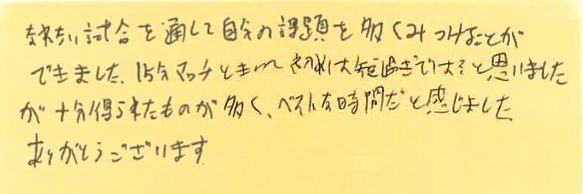 試合を通して自分の課題を多くみつけることが
できました。15分マッチときいて初めは短過ぎでは?と思いました
が十分得られたものが多く、ベストな時間だと感じました
ありがとうございます